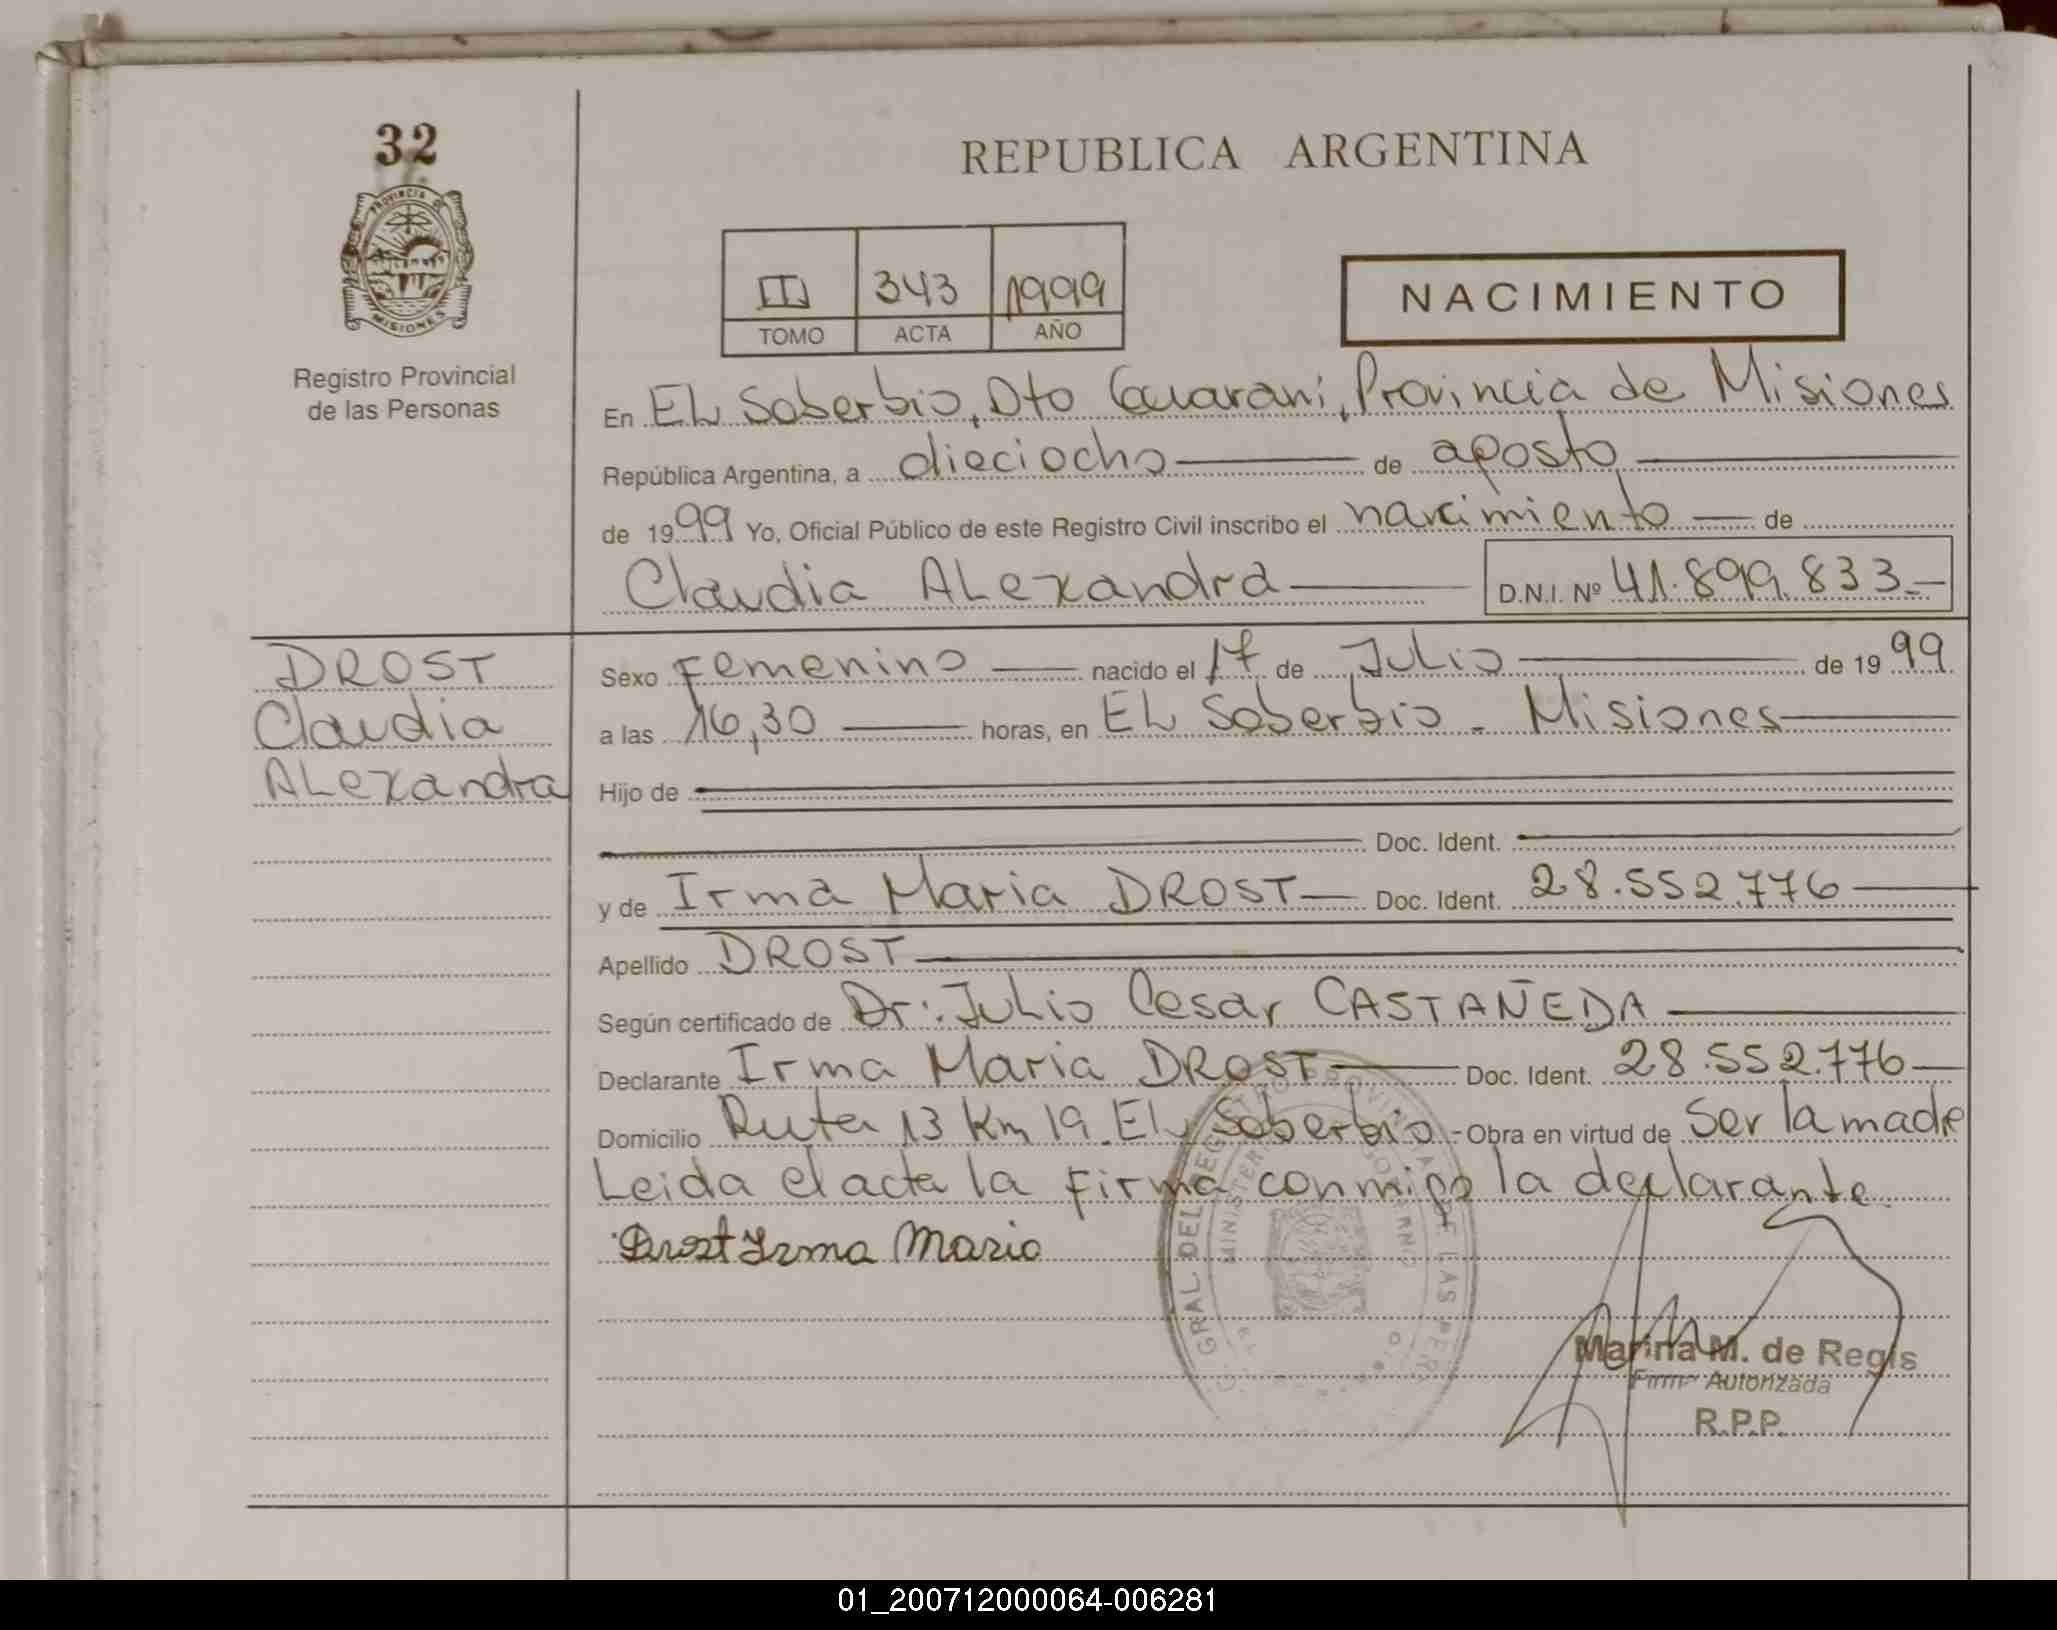 32
PROVINCIA DE
MISIONES
Registro Provincial
de las Personas
REPUBLICA ARGENTINA
II 343 1999
TOMO ACTA AÑO
NACIMIENTO
En EL Soberbio, Dto Guaraní, Provincia de Misiones
República Argentina, a dieciocho de agosto
de 1999 Yo, Oficial Público de este Registro Civil inscribo el nacimiento de
Claudia ALexandra D.N.I. Nº 41.899.833
DROST
Claudia
ALexandra
Sexo Femenino nacido el 17 de Julio de 1999
a las 16,30 horas, en EL Soberbio - Misiones
Hijo de
Doc. Ident.
y de Irma Maria DROST Doc. Ident. 28.552.776
Apellido DROST
Según certificado de Dr: Julio Cesar CASTAÑEDA
Declarante Irma Maria DROST Doc. Ident. 28.552.776
Domicilio Ruta 13 Km 19 - EL Soberbio - Obra en virtud de Ser la madre
Leida el acta la Firma conmigo la declarante
Drost Irma Maria
GRAL DEL REGISTRO PROVINCIAL DE LAS PER
MINISTER GOBIERNO
Marina M. de Regis
Firma Autorizada
R.P.P.
01_200712000064-006281